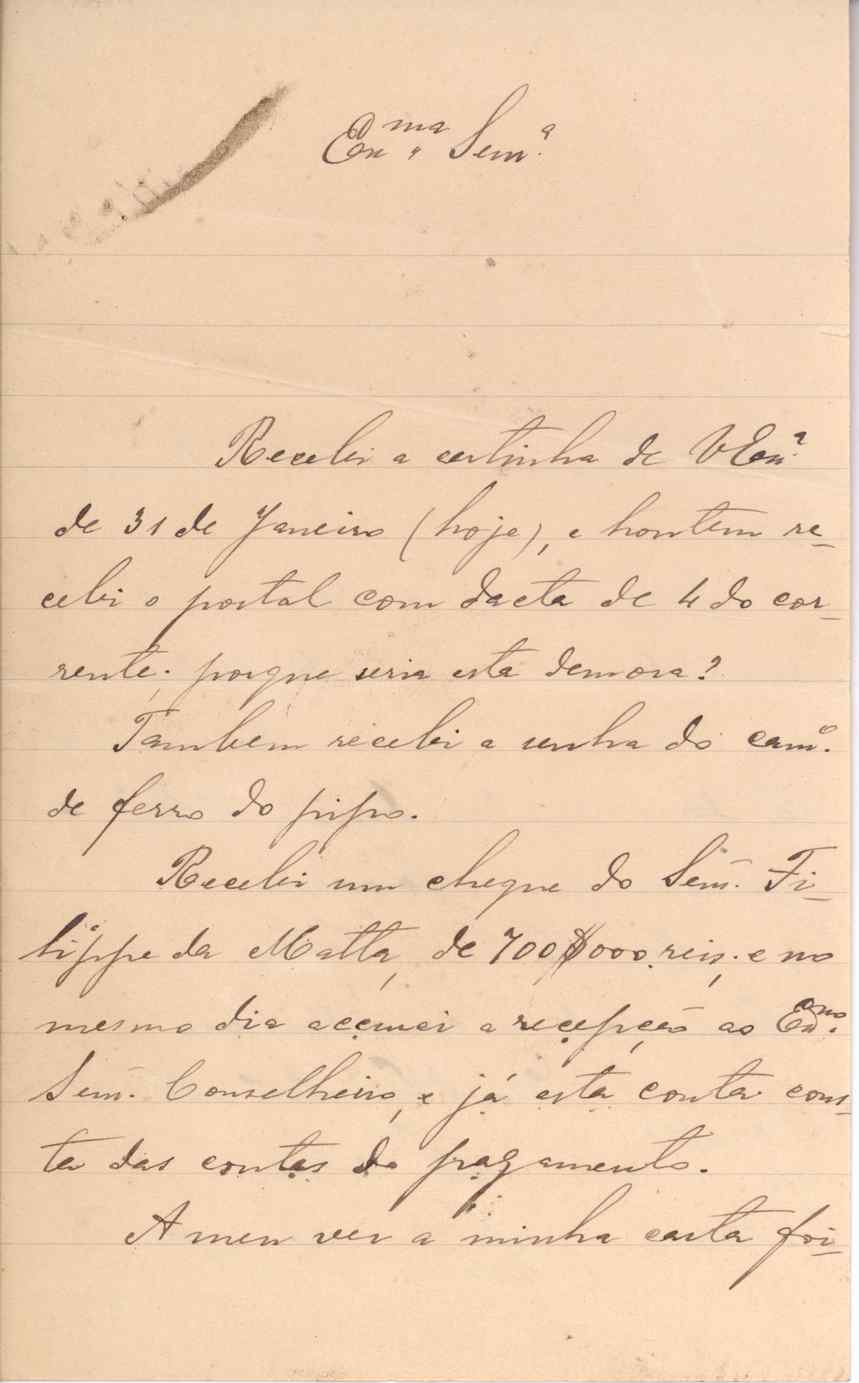 Exma Senra
Recebi a cartinha de V Exa
de 31 de Janeiro (hoje), e hontem re-
cebi o postal com dacta de 4 do cor-
rente; porque seria esta demora?
Tambem recebi a senha do camo.
de ferro do pipo.
Recebi um cheque do Senr. Fi-
lippe da Matta, de 700$000 reis; e no
mesmo dia acemei a recepção ao Exmo.
Senr. Conselheiro, e já esta conta cons-
ta das contas do pagamento.
A meu ver a minha carta foi-